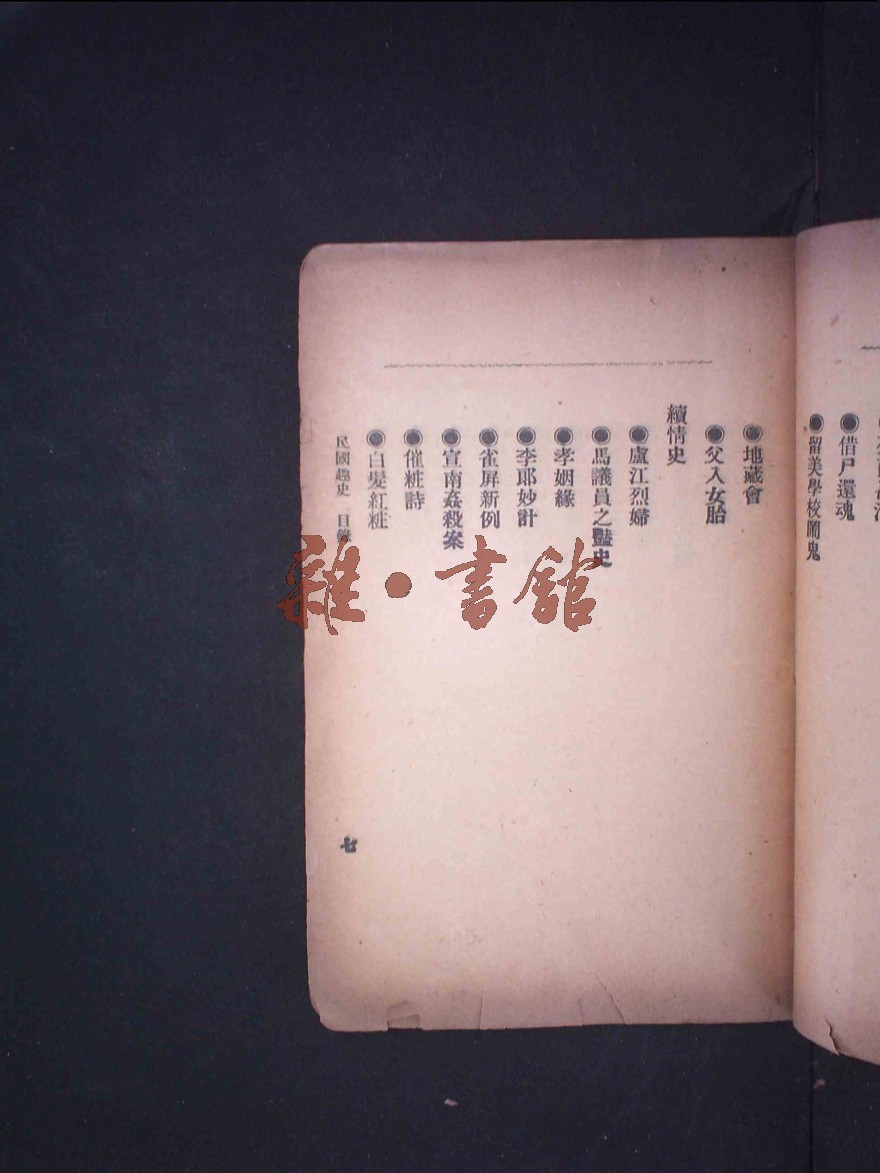 借尸還魂
留美學校鬧鬼
地藏會
父入女胎
續情史
盧江烈婦
馬議員之豔史
孝姻緣
李郎妙計
雀屏新例
宣南姦殺案
催粧詩
白髮紅粧
民國趣史 目錄
七
雜·書館